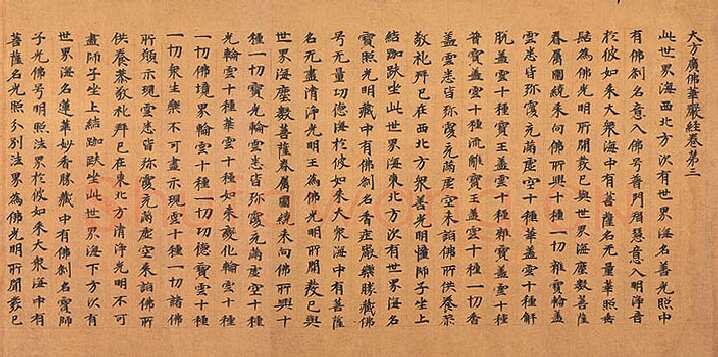 大方廣佛華嚴經卷第三
此世界海西北方次有世界海名善光照中
有佛刹名意入佛号普門眉慧意入明淨音
於彼如来大衆海中有菩薩名无量華照垂
髻為佛光明所開發已與世界海塵數菩薩
眷屬圍繞来向佛所興十種一切雜寶輪盖
雲悉皆弥覆充滿虚空十種華盖雲十種解
脱盖雲十種寶王盖雲十種雜寶盖雲十種
普寶盖雲十種流離寶王盖雲十種一切香
盖雲悉皆弥覆充滿虚空来詣佛所供養恭
敬礼拜已在西北方衆善光明幢師子坐上
結跏趺坐此世界海東北方次有世界海名
寶照光明藏中有佛刹名香莊嚴樂勝藏佛
号无量功德海於彼如来大衆海中有菩薩
名无盡清淨光明王為佛光明所開發已與
世界海塵數菩薩眷屬圍繞来向佛所興十
種一切寶光輪雲悉皆弥覆充滿虚空十種
光輪雲十種華雲十種如来變化輪雲十種
一切佛境界輪雲十種一切功德寶雲十種
一切衆生樂不可盡示現雲十種一切諸佛
所願示現雲悉皆弥覆充滿虚空来詣佛所
供養恭敬礼拜已在東北方清淨光明不可
盡師子坐上結跏趺坐此世界海下方次有
世界海名蓮華妙香勝藏中有佛刹名寶師
子光佛号明照法界於彼如来大衆海中有
菩薩名光照分別法界為佛光明所開發已